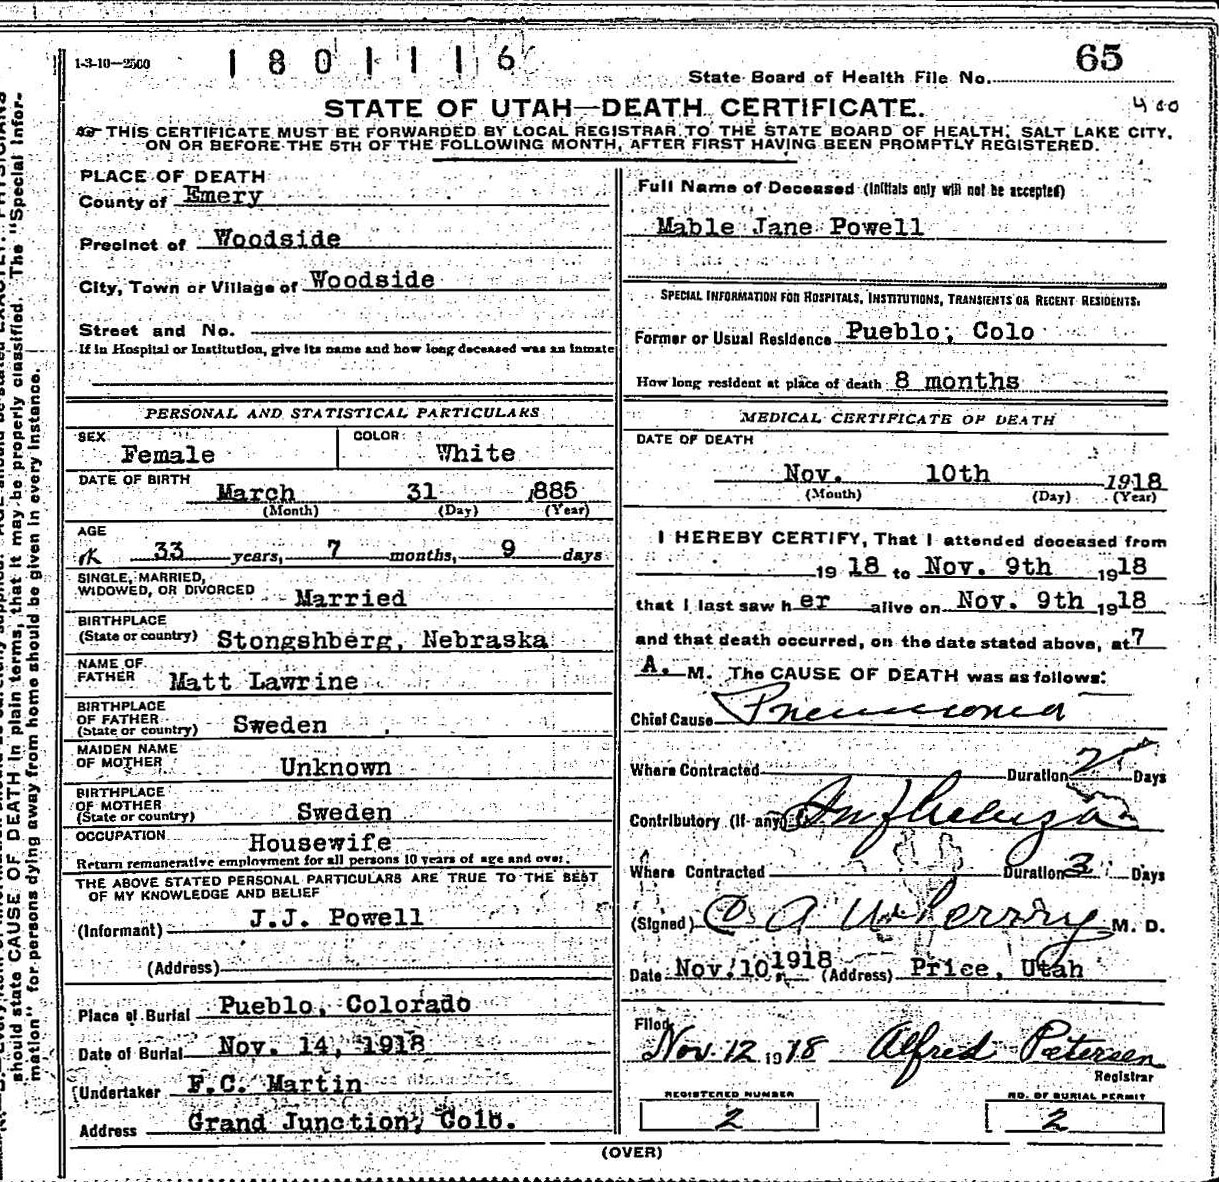 1-3-10—2500
1801116
State Board of Health File No. 65
400
STATE OF UTAH—DEATH CERTIFICATE.
THIS CERTIFICATE MUST BE FORWARDED BY LOCAL REGISTRAR TO THE STATE BOARD OF HEALTH, SALT LAKE CITY,
ON OR BEFORE THE 5TH OF THE FOLLOWING MONTH, AFTER FIRST HAVING BEEN PROMPTLY REGISTERED.
PLACE OF DEATH
County of Emery
Precinct of Woodside
City, Town or Village of Woodside
Street and No.
If in Hospital or Institution, give its name and how long deceased was an inmate
PERSONAL AND STATISTICAL PARTICULARS
SEX Female
COLOR White
DATE OF BIRTH
March 31 1885
(Month) (Day) (Year)
AGE
33 years, 7 months, 9 days
SINGLE, MARRIED,
WIDOWED, OR DIVORCED Married
BIRTHPLACE
(State or country) Stongshberg, Nebraska
NAME OF
FATHER Matt Lawrine
BIRTHPLACE
OF FATHER
(State or country) Sweden
MAIDEN NAME
OF MOTHER Unknown
BIRTHPLACE
OF MOTHER
(State or country) Sweden
OCCUPATION Housewife
Return remunerative employment for all persons 10 years of age and over.
THE ABOVE STATED PERSONAL PARTICULARS ARE TRUE TO THE BEST
OF MY KNOWLEDGE AND BELIEF
(Informant) J.J. Powell
(Address)
Place of Burial Pueblo, Colorado
Date of Burial Nov. 14, 1918
Undertaker F.C. Martin
Address Grand Junction, Colo.
Full Name of Deceased (Initials only will not be accepted)
Mable Jane Powell
SPECIAL INFORMATION FOR HOSPITALS, INSTITUTIONS, TRANSIENTS OR RECENT RESIDENTS.
Former or Usual Residence Pueblo, Colo
How long resident at place of death 8 months
MEDICAL CERTIFICATE OF DEATH
DATE OF DEATH
Nov. 10th 1918
(Month) (Day) (Year)
I HEREBY CERTIFY, That I attended deceased from
1918 to Nov. 9th 1918
that I last saw her alive on Nov. 9th 1918
and that death occurred, on the date stated above, at 7
A. M. The CAUSE OF DEATH was as follows:
Chief Cause Pneumonia
Where Contracted Duration 2 Days
Contributory (if any) Influenza
Where Contracted Duration 3 Days
(Signed) M. D.
Date Nov. 10 1918 (Address) Price, Utah
Filed Nov. 12 1918 Alfred Petersen
Registrar
REGISTERED NUMBER
2
NO. OF BURIAL PERMIT
2
(OVER)
should state CAUSE OF DEATH in plain terms, that it may be properly classified. The "Special Infor-
mation" for persons dying away from home should be given in every instance.